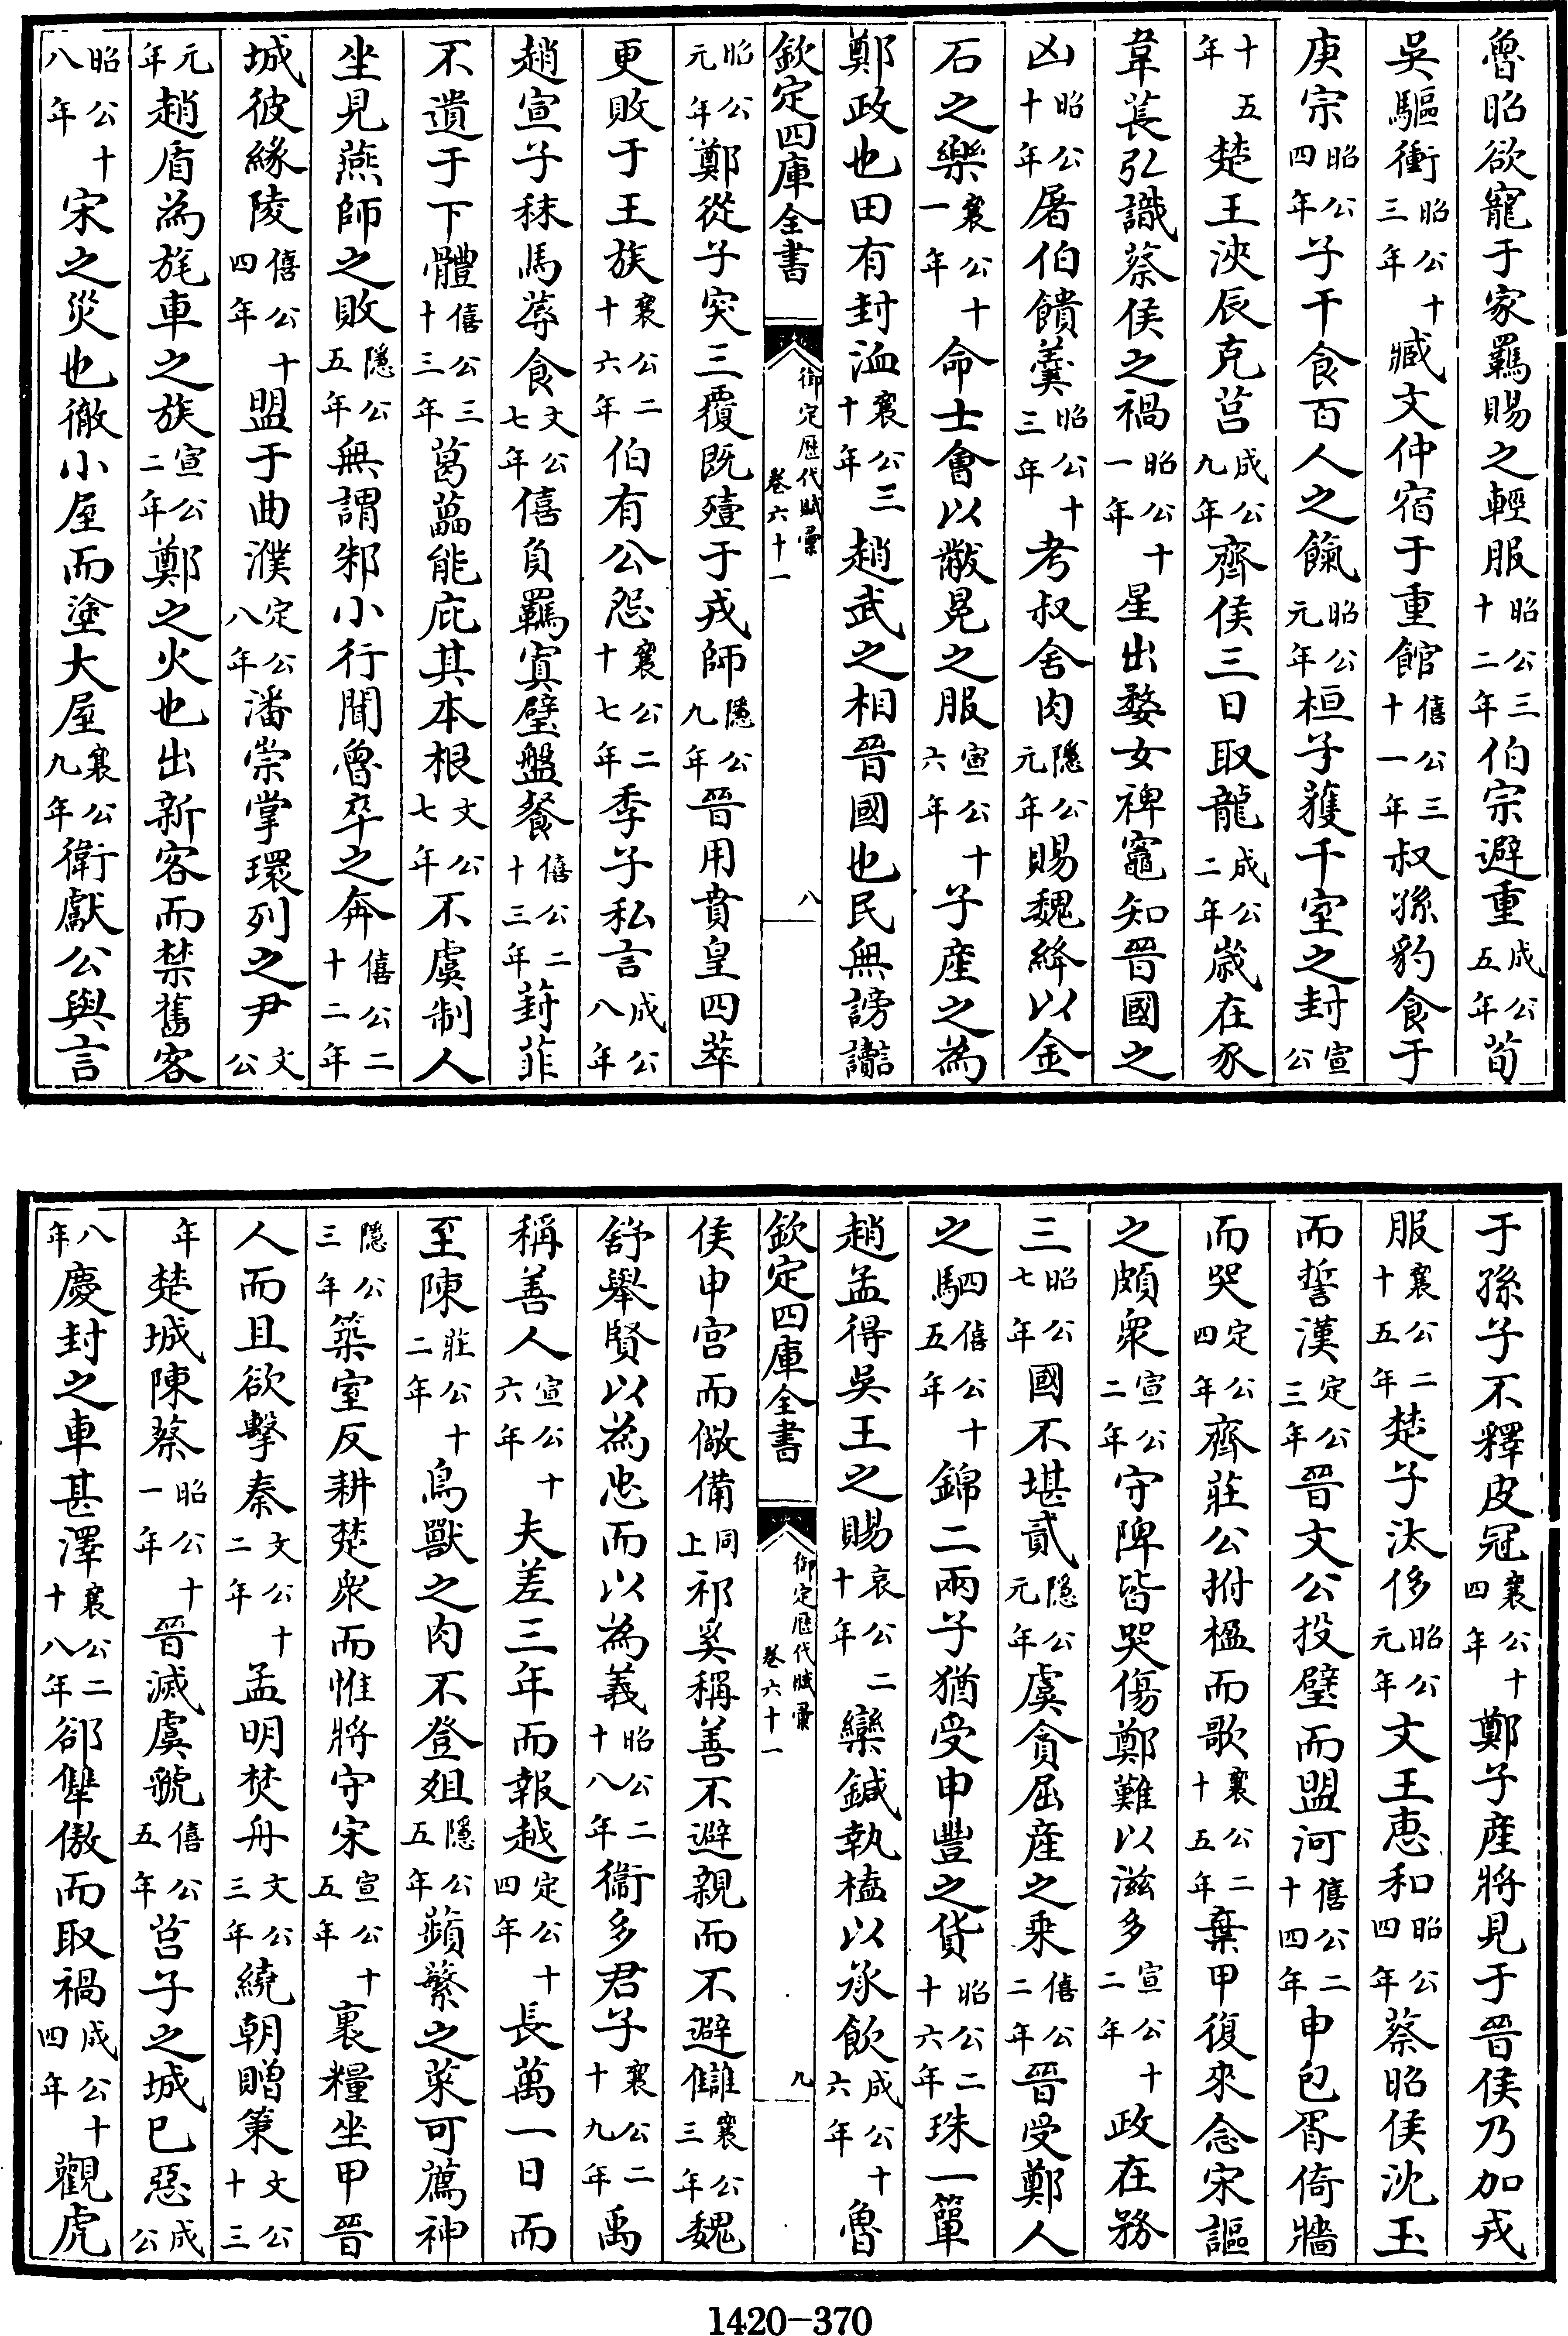 魯昭欲寵于家羈賜之輕服昭公三十二年伯宗避重成公五年荀
吳驅衝昭公十三年臧文仲宿于重館僖公三十一年叔孫豹食于
庚宗昭公四年子干食百人之餼昭公元年桓子獲千室之封宣公
十五年楚王浹辰克莒成公九年齊侯三日取龍成公二年歲在豕
韋萇弘識蔡侯之禍昭公十一年星出婺女裨竈知晉國之
凶昭公十年屠伯饋羹昭公十三年考叔舍肉隱公元年賜魏絳以金
石之樂襄公十一年命士會以黻冕之服宣公十六年子產之為
鄭政也田有封洫襄公三十年趙武之相晉國也民無謗讟
欽定四庫全書
御定歷代賦彙
卷六十一
八
昭公元年鄭從子突三覆既殪于戎師隱公九年晉用賁皇四萃
更敗于王族襄公二十六年伯有公怨襄公二十七年季子私言成公八年
趙宣子秣馬蓐食文公七年僖負羈寘璧盤餐僖公二十三年葑菲
不遺于下體僖公三十三年葛藟能庇其本根文公七年不虞制人
坐見燕師之敗隱公五年無謂邾小行聞魯卒之奔僖公二十二年
城彼緣陵僖公十四年盟于曲濮定公八年潘崇掌環列之尹文公
元年趙盾為旄車之族宣公二年鄭之火也出新客而禁舊客
昭公十八年宋之災也徹小屋而塗大屋襄公九年衛獻公與言
于孫子不釋皮冠襄公十四年鄭子產將見于晉侯乃加戎
服襄公二十五年楚子汰侈昭公元年文王惠和昭公四年蔡昭侯沈玉
而誓漢定公三年晉文公投璧而盟河僖公二十四年申包胥倚牆
而哭定公四年齊莊公拊楹而歌襄公二十五年棄甲復來念宋謳
之頗衆宣公二年守陴皆哭傷鄭難以滋多宣公十二年政在務
三昭公七年國不堪貳隱公元年虞貪屈產之乘僖公二年晉受鄭人
之駟僖公十五年錦二兩子猶受申豐之貨昭公二十六年珠一簞
趙孟得吳王之賜哀公二十年欒鍼執榼以承飲成公十六年魯
欽定四庫全書
御定歷代賦彙
卷六十一
九
侯申宮而儆備同上祁奚稱善不避親而不避讎襄公三年魏
舒舉賢以為忠而以為義昭公二十八年衞多君子襄公二十九年禹
稱善人宣公十六年夫差三年而報越定公十四年長萬一日而
至陳莊公十二年鳥獸之肉不登俎隱公五年蘋蘩之菜可薦神
隱公三年築室反耕楚衆而惟將守宋宣公十五年裹糧坐甲晉
人而且欲擊秦文公十二年孟明焚舟文公三年繞朝贈策文公十三
年楚城陳蔡昭公十一年晉滅虞虢僖公五年莒子之城已惡成公
八年慶封之車甚澤襄公二十八年郤犨傲而取禍成公十四年觀虎
1420-370